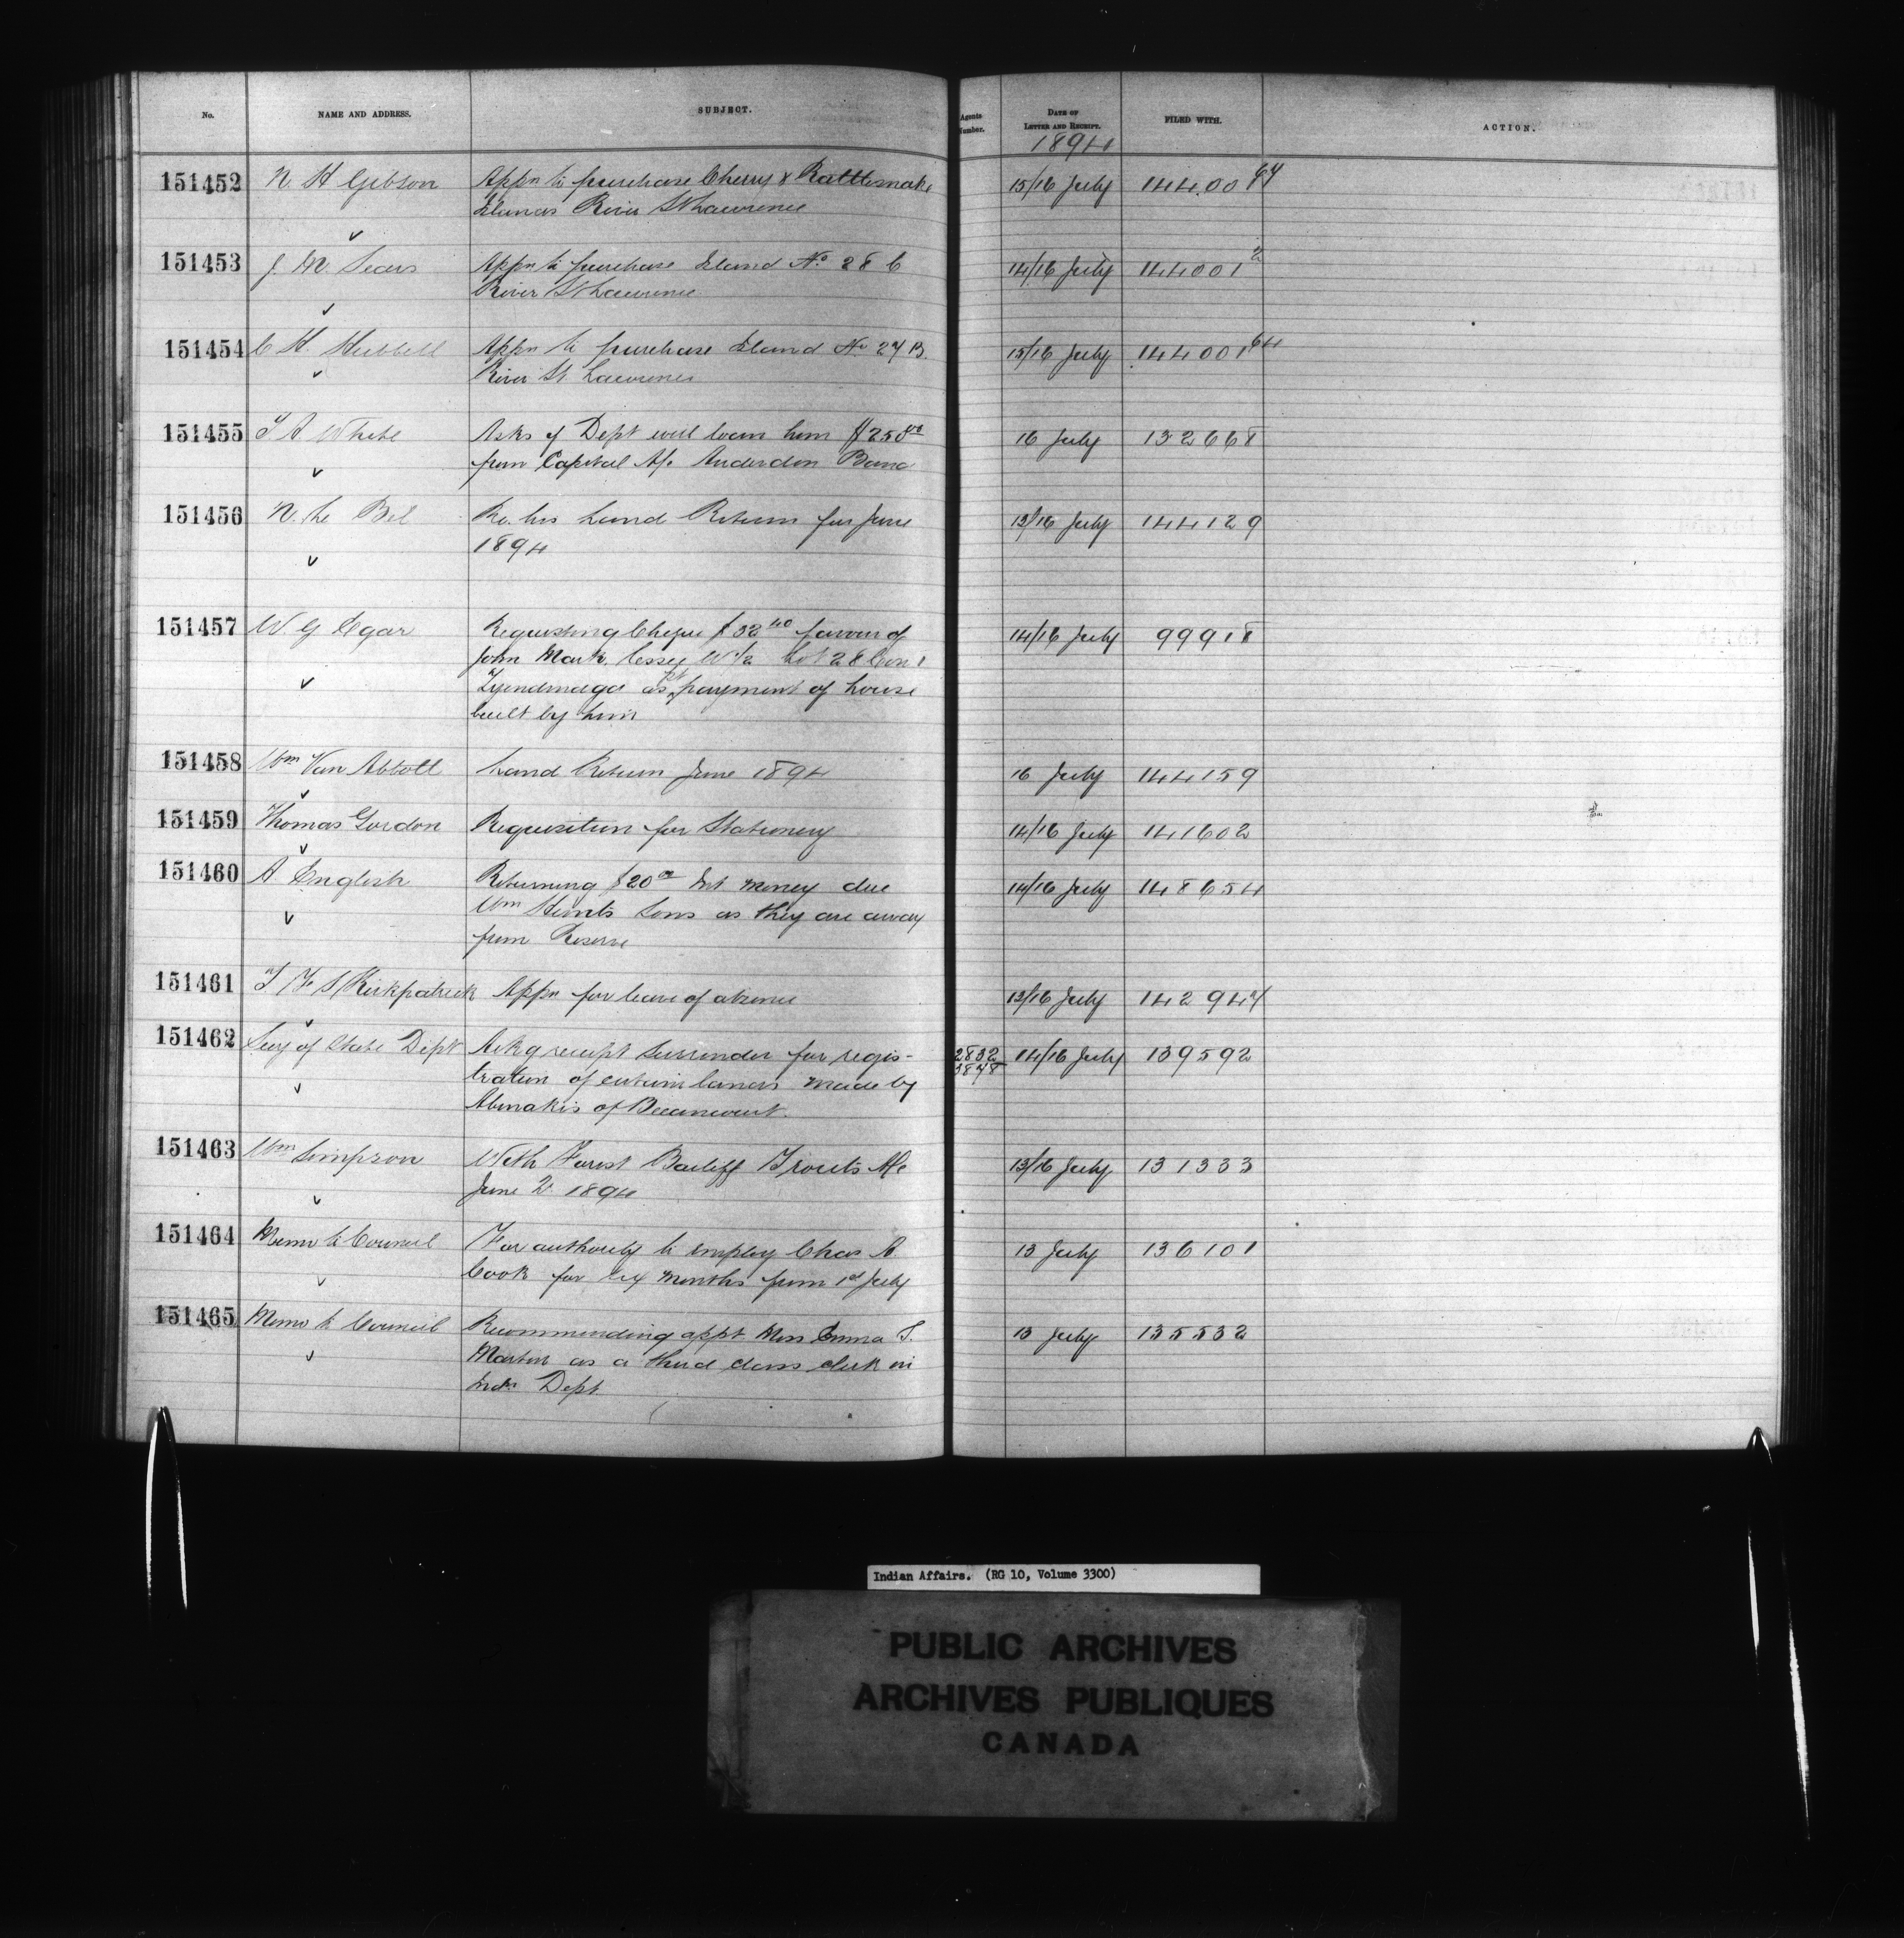 No. NAME AND ADDRESS. SUBJECT. Agents Number. DATE OF LETTER AND RECEIPT. FILED WITH. ACTION.
1894
151452 N. H Gibson Appn to purchase Cherry & Rattlesnake 15/16 July 144001 64
Islands River St Lawrence
151453 J. M. Sears Appn to purchase Island No. 28 C 14/16 July 144001 2
River St Lawrence
151454 C H. Hubbell Appn to purchase Island No 27 B. 15/16 July 144001 64
River St Lawrence
151455 T A White Asks if Dept will loan him $250 00 16 July 132668
from Capital A/c Anderdon Band
151456 N. Le Bel Re. his Land Return for June 13/16 July 144129
1894
151457 W. G Egar Requesting Cheque $32 40 favour of 14/16 July 99918
John Mark. lessee W 1/2 Lot 28 Con 1
Tyendinaga as pt payment of house
built by him
151458 Wm Van Abbott Land Return June 1894 16 July 144159
151459 Thomas Gordon Requisition for Stationery 14/16 July 141602
151460 A English Returning $20 00 Int money due 14/16 July 148654
Wm Hunts Sons as they are away
from Reserve
151461 T F S Kirkpatrick Appn for leave of absence 13/16 July 142947
151462 Secy of State Dept Ackg receipt Surrender for regis- 2832 14/16 July 139592
3878
tration of certain lands made by
Abenakis of Becancourt.
151463 Wm Simpson With Forest Bailiff Trouts A/c 13/16 July 131333
June 2 1894
151464 Memo to Council For authority to employ Chas A. 13 July 136101
Cook for six months from 1st July
151465 Memo to Council Recommending appt Miss Emma S. 13 July 135532
Martin as a third class clerk in
Indn Dept
Indian Affairs. (RG 10, Volume 3300)
PUBLIC ARCHIVES
ARCHIVES PUBLIQUES
CANADA